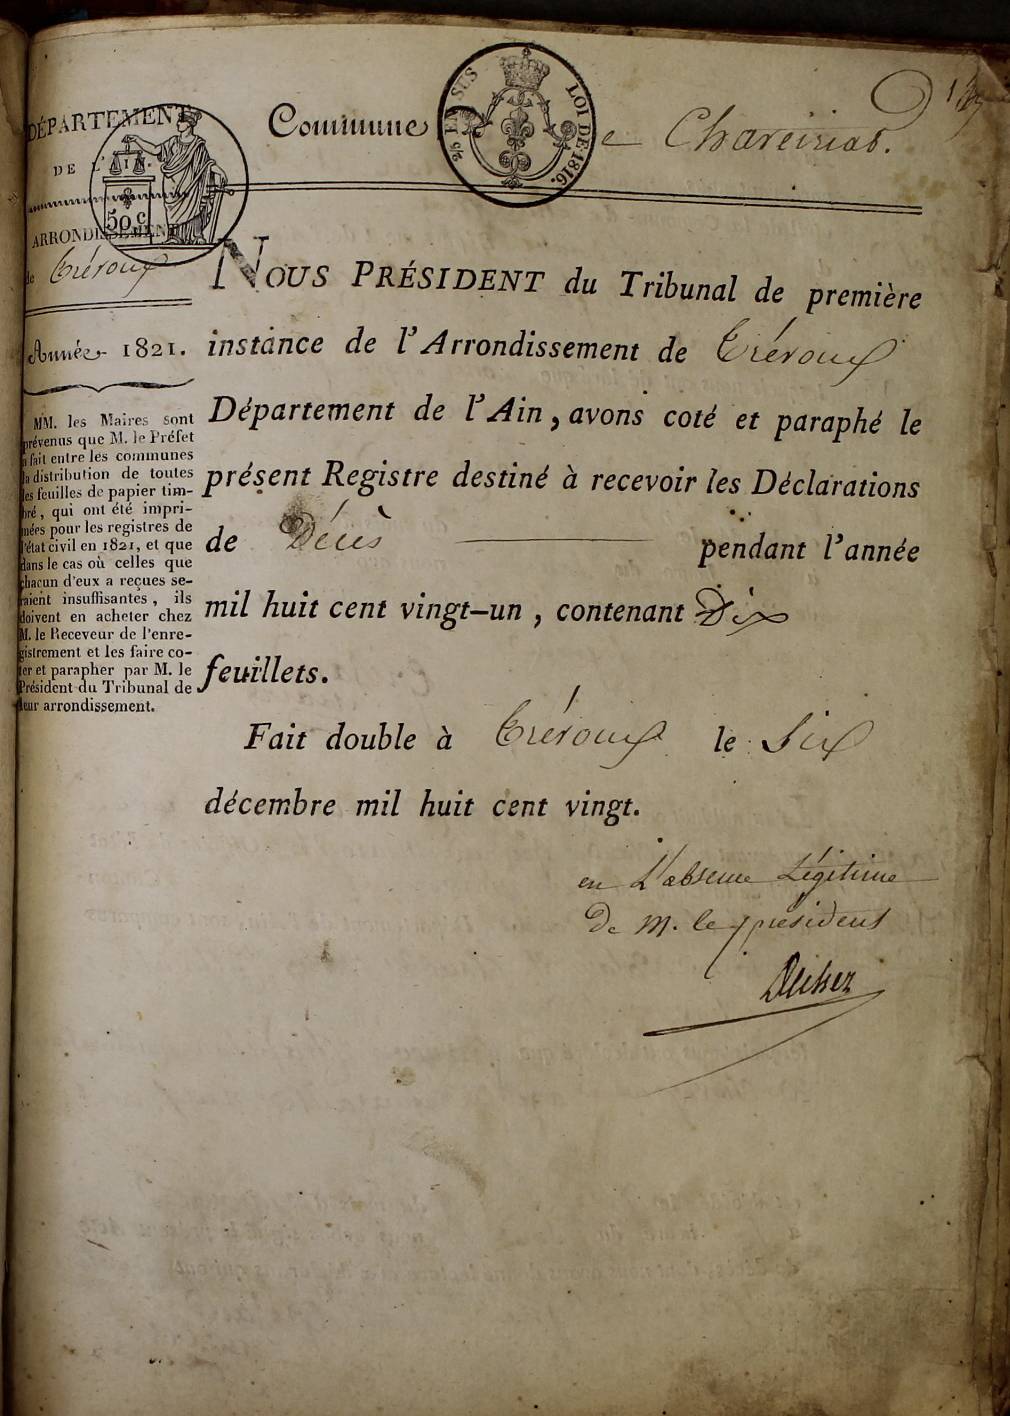 DÉPARTEMENT
DE L'
50 c
ARRONDISSEMENT
de Trévoux
Année 1821.
MM. les Maires sont
prévenus que M. le Préfet
a fait entre les communes
la distribution de toutes
les feuilles de papier tim-
bré, qui ont été impri-
mées pour les registres de
l'état civil en 1821, et que
dans le cas où celles que
chacun d'eux a reçues se-
raient insuffisantes, ils
doivent en acheter chez
M. le Receveur de l'enre-
gistrement et les faire co-
ter et parapher par M. le
Président du Tribunal de
leur arrondissement.
Commune e Chaneinas.
EN SUS
LOI DE 1816.
NOUS PRÉSIDENT du Tribunal de première
instance de l'Arrondissement de Trévoux
Département de l'Ain, avons coté et paraphé le
présent Registre destiné à recevoir les Déclarations
de Décès pendant l'année
mil huit cent vingt-un, contenant Dix
feuillets.
Fait double à Trévoux le Six
décembre mil huit cent vingt.
en L'absence Légitime
De M. le président